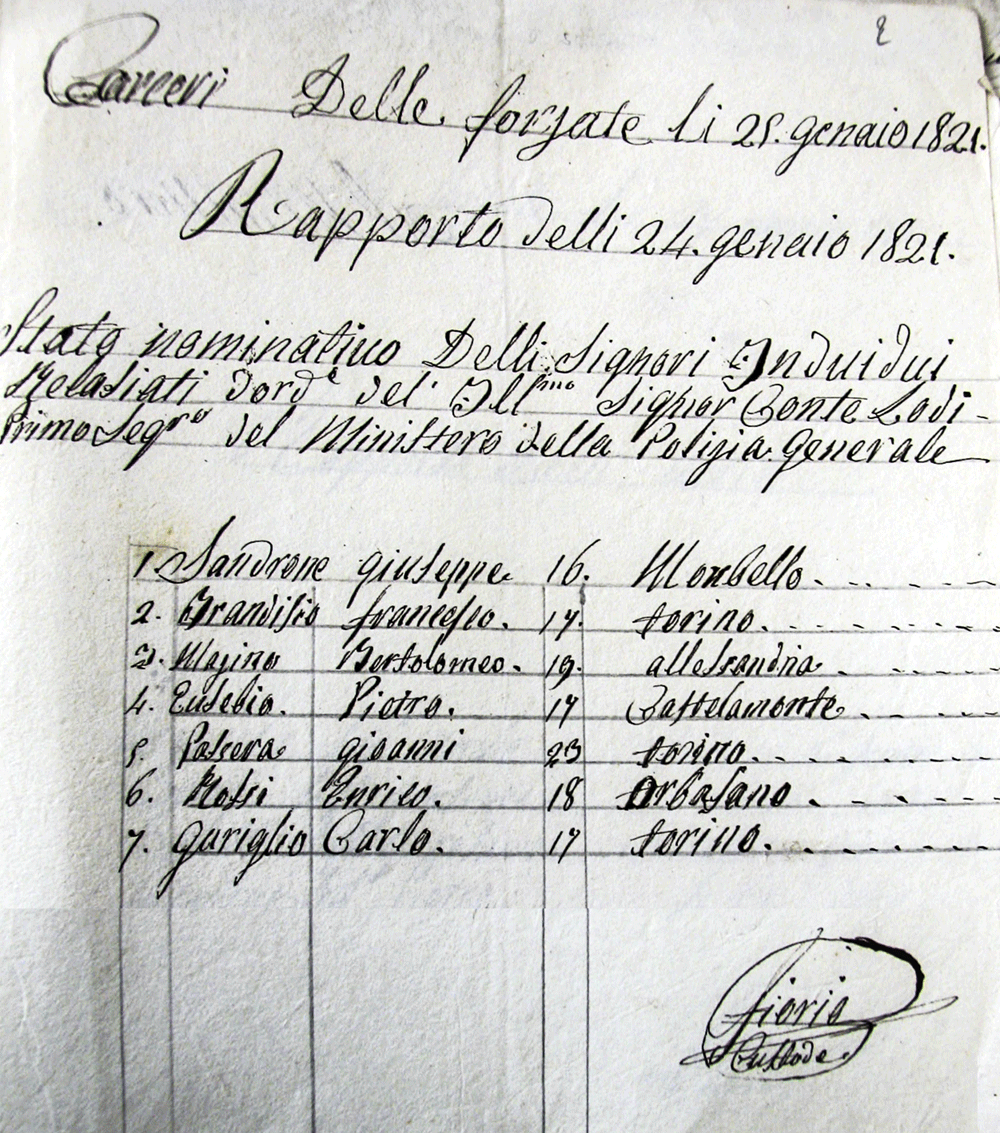 Carceri Delle forzate li 25. genaio 1821.
Rapporto delli 24. genaio 1821.
Stato nominativo Delli Signori Induidui
Relasiati d'ord.e del' Ill.mo Signor Conte Lodi -
Primo Seg.ro del Ministero della Polizia generale
1. Sandrone giuseppe 16. Monbello.
2. Brandisio francesco. 17. torino.
3. Magino Bertolomeo. 19. allessandria
4. Eusebio. Pietro. 17 Castelamonte
5. Passera gioanni 23 torino.
6. Rossi Enrico. 18 Orbasano
7. gariglio Carlo. 17 torino.
Fiorio
Custode.